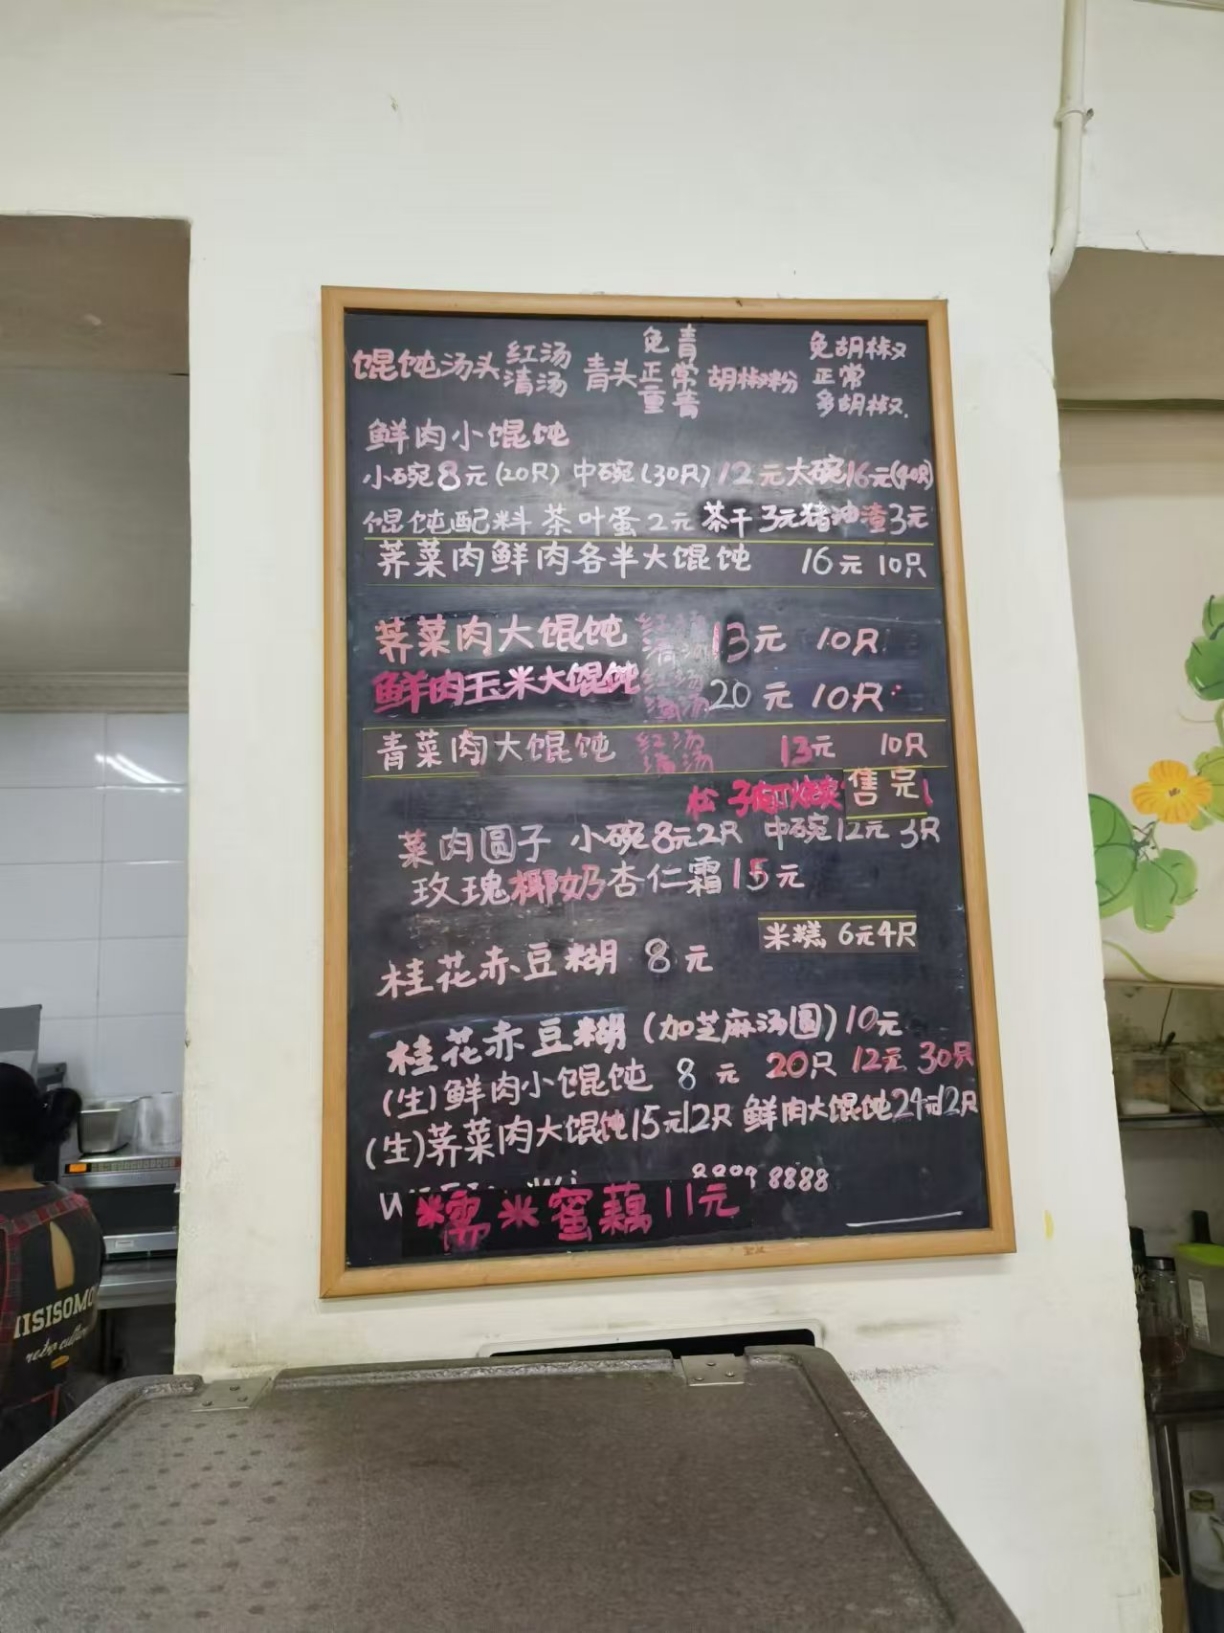 馄饨汤头 红汤 清汤 青头 免青 正常 重青 胡椒粉 免胡椒 正常 多胡椒
鲜肉小馄饨
小碗8元(20只) 中碗(30只)12元大碗16元(40只)
馄饨配料 茶叶蛋2元 茶干3元猪油渣3元
荠菜肉鲜肉各半大馄饨 16元 10只
荠菜肉大馄饨 红汤 清汤 13元 10只
鲜肉玉米大馄饨 红汤 清汤 20元 10只
青菜肉大馄饨 红汤 清汤 13元 10只
松子 售完
菜肉圆子 小碗8元2只 中碗12元3只
玫瑰椰奶杏仁霜15元
米糕 6元4只
桂花赤豆糊 8元
桂花赤豆糊(加芝麻汤圆)10元
(生)鲜肉小馄饨 8元 20只 12元 30只
(生)荠菜肉大馄饨15元12只 鲜肉大馄饨24元12只
8888
糯米蜜藕11元
IISISOMO